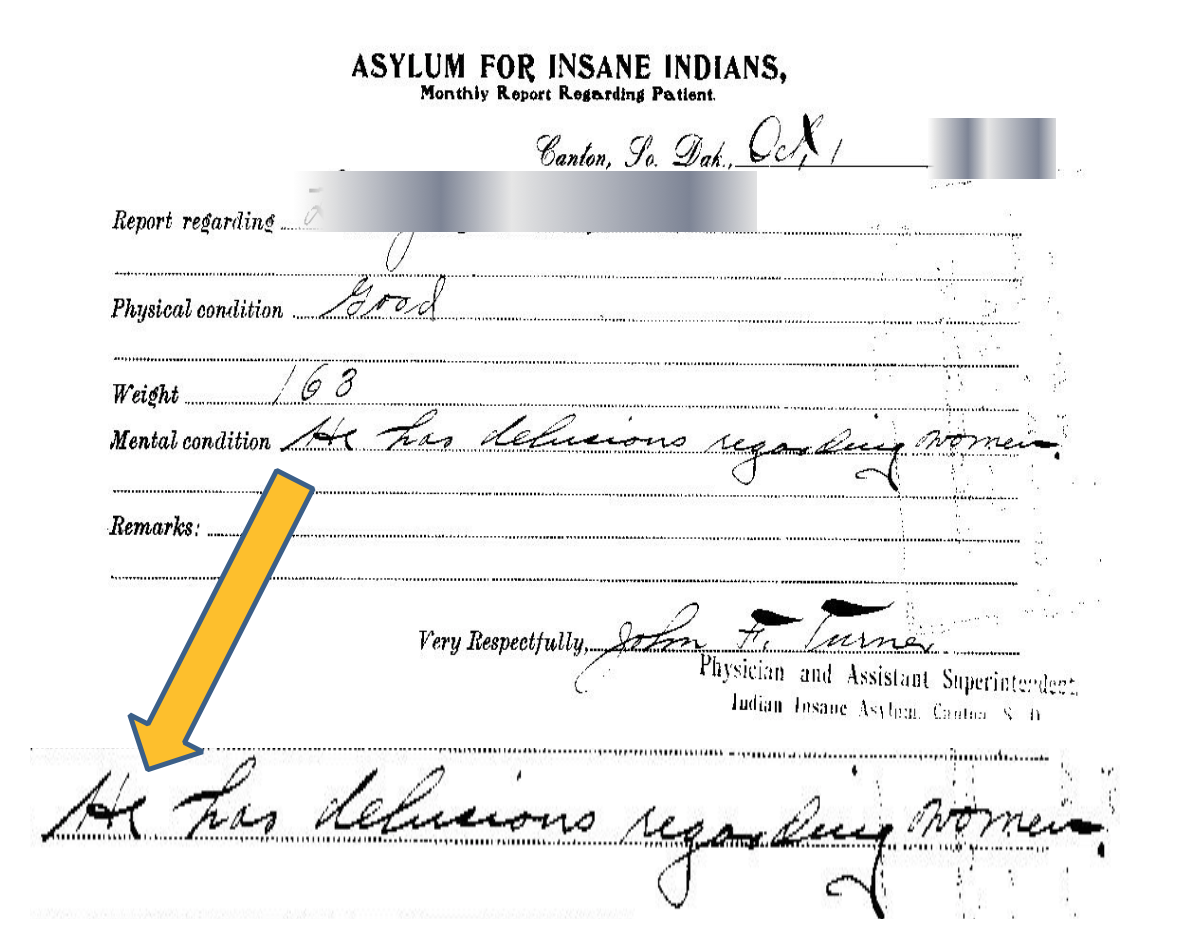 ASYLUM FOR INSANE INDIANS,
Monthly Report Regarding Patient.
Canton, So. Dak., Oct, 1
Report regarding
Physical condition Good
Weight 163
Mental condition He has delusions regarding women.
Remarks:
Very Respectfully, John F. Turner
Physician and Assistant Superintendent,
Indian Insane Asylum, Canton S. D.
He has delusions regarding women.